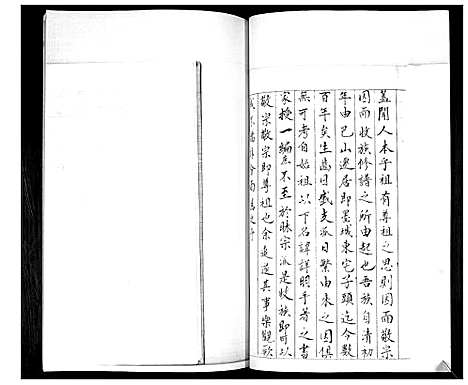 蓋聞人本乎祖有尊祖之思則因而敬宗
因而收族修譜之所由起也吾族自清初
年由巴山遷居即墨城東宅子頭迄今數
百年矣生齒日盛支派日繁由來之因俱
無可考自始祖以下名諱詳明乎著之書
家授一編庶不至於昧宗派是收族即可以
敬宗敬宗即尊祖也余追逆其事樂觀厥
成不揣